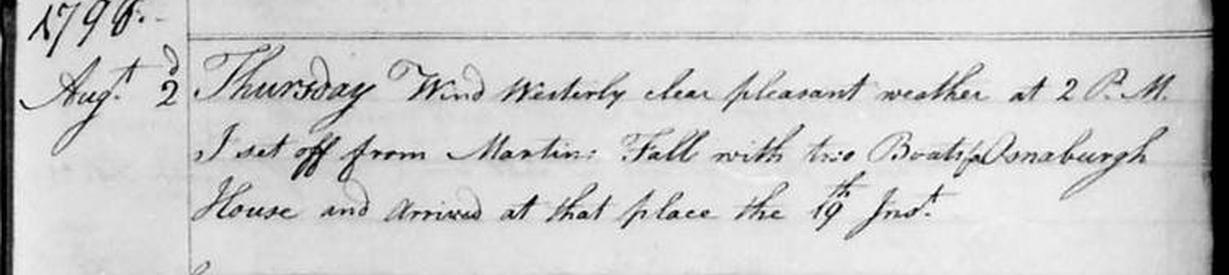 1796.
Augt. 2d Thursday Wind Westerly clear pleasant weather at 2 P.M.
I set off from Martins Fall with two Boats for Osnaburgh
House and arrived at that place the 19th Inst.